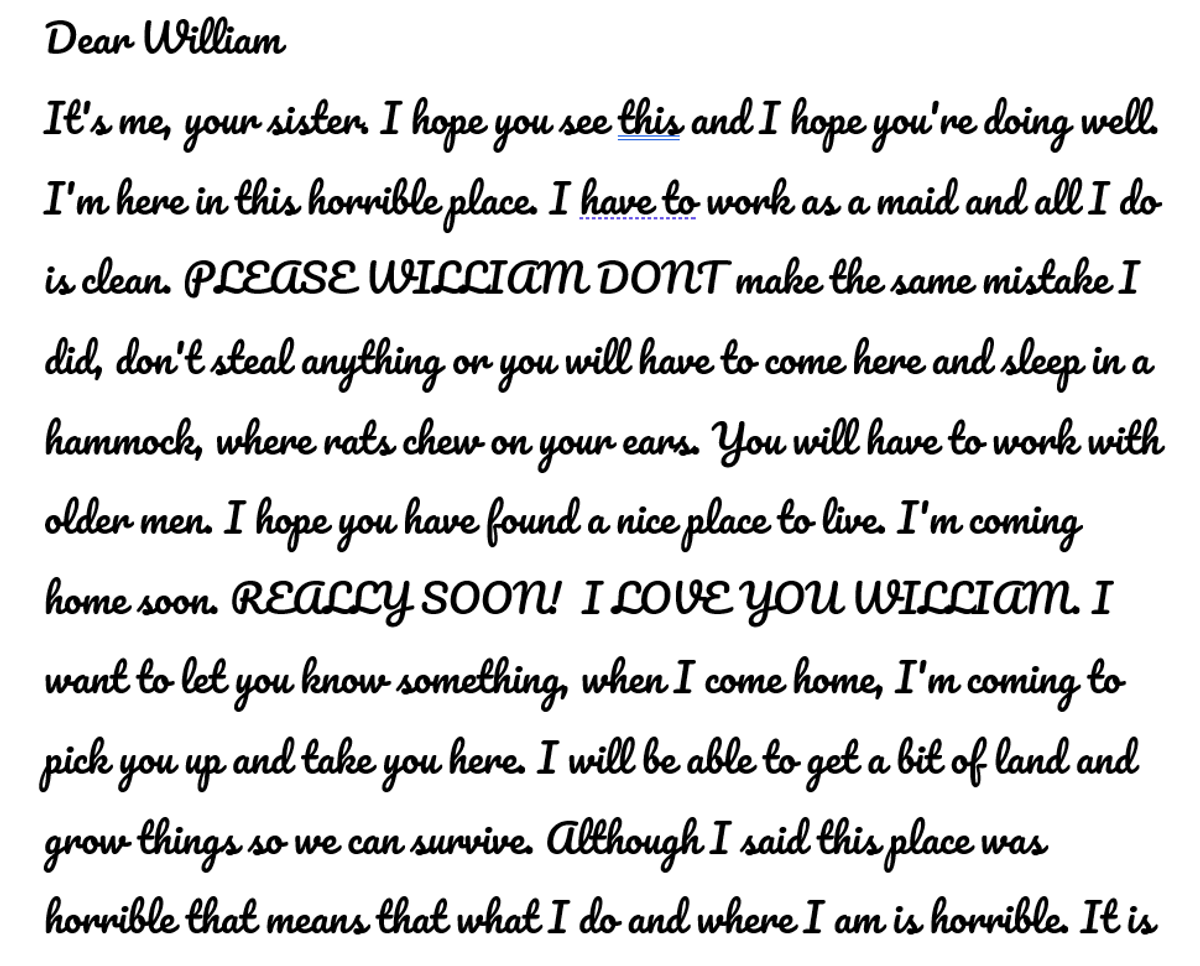 Dear William
It's me, your sister. I hope you see this and I hope you're doing well.
I'm here in this horrible place. I have to work as a maid and all I do
is clean. PLEASE WILLIAM DONT make the same mistake I
did, don't steal anything or you will have to come here and sleep in a
hammock, where rats chew on your ears. You will have to work with
older men. I hope you have found a nice place to live. I'm coming
home soon. REALLY SOON! I LOVE YOU WILLIAM. I
want to let you know something, when I come home, I'm coming to
pick you up and take you here. I will be able to get a bit of land and
grow things so we can survive. Although I said this place was
horrible that means that what I do and where I am is horrible. It is